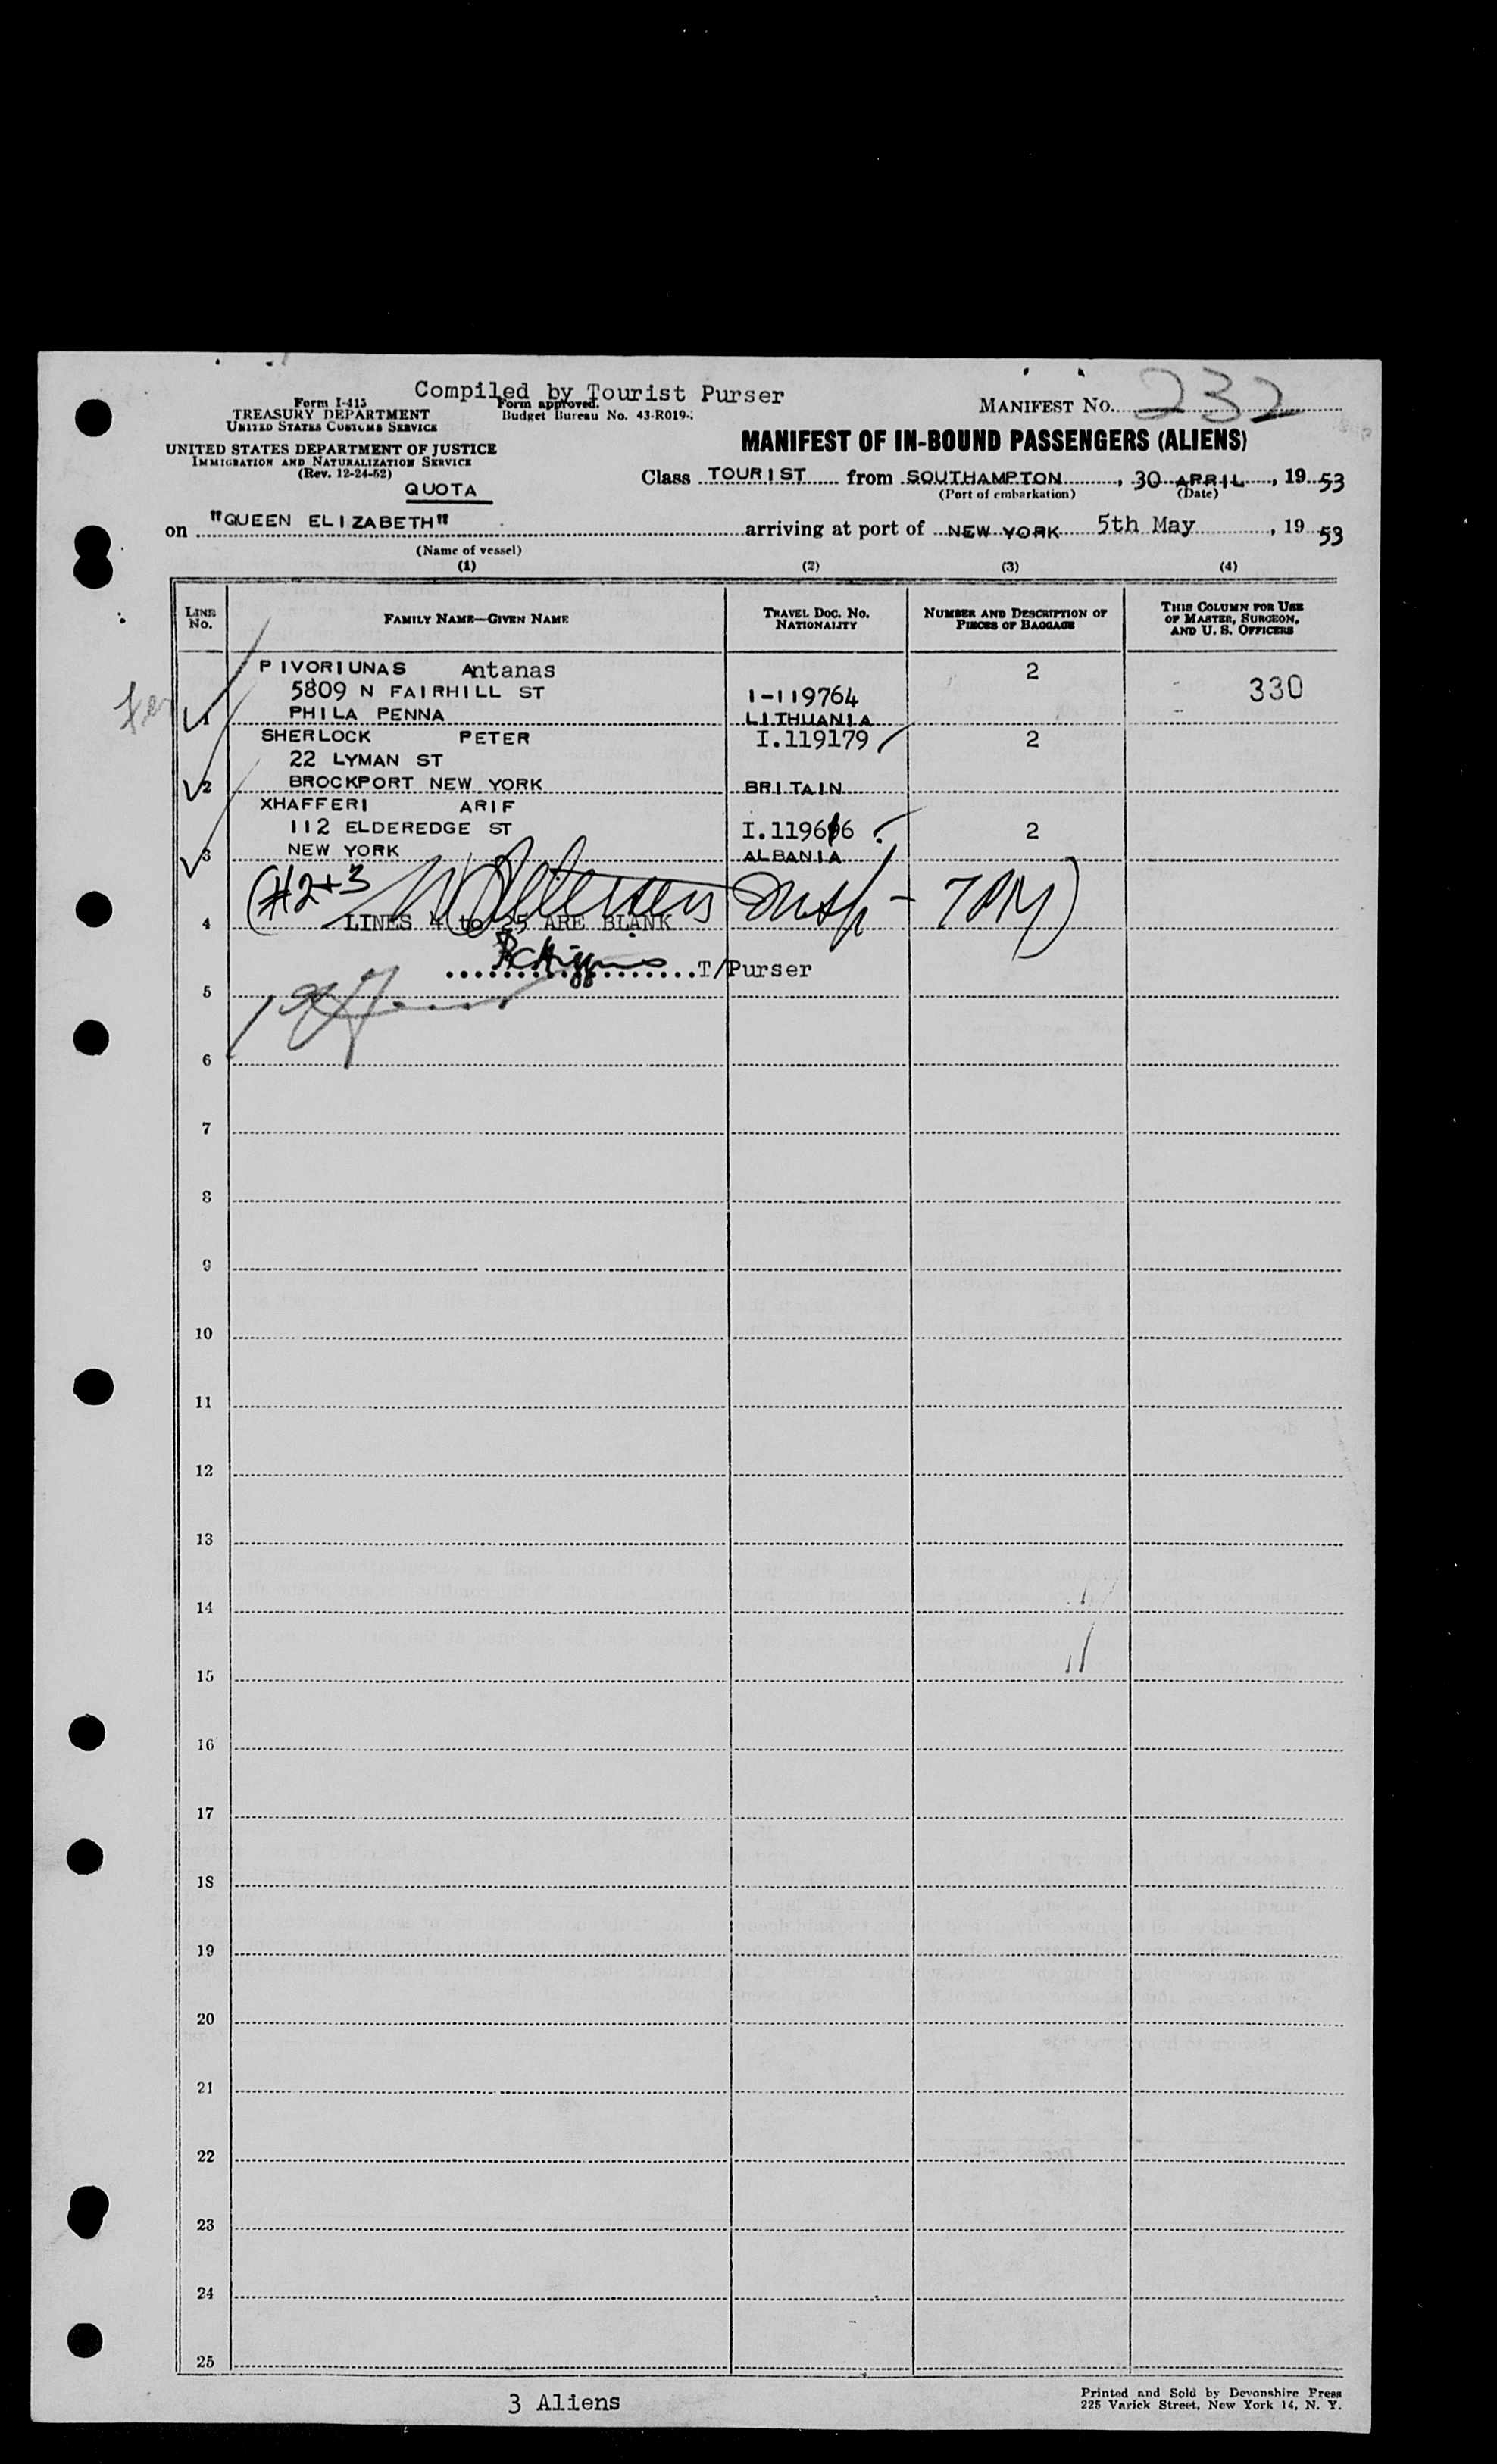 Compiled by Tourist Purser
Form I-415
TREASURY DEPARTMENT
UNITED STATES CUSTOMS SERVICE
Form approved.
Budget Bureau No. 43-R019-
MANIFEST NO. 232
UNITED STATES DEPARTMENT OF JUSTICE
IMMIGRATION AND NATURALIZATION SERVICE
(Rev. 12-24-52)
QUOTA
MANIFEST OF IN-BOUND PASSENGERS (ALIENS)
Class TOURIST from SOUTHAMPTON, 30 APRIL, 1953
(Port of embarkation) (Date)
on "QUEEN ELIZABETH" arriving at port of NEW YORK 5th May, 1953
(Name of vessel)
(1) (2) (3) (4)
LINE NO. FAMILY NAME—GIVEN NAME TRAVEL DOC. NO. NATIONALITY NUMBER AND DESCRIPTION OF PIECES OF BAGGAGE THIS COLUMN FOR USE OF MASTER, SURGEON, AND U. S. OFFICERS
PIVORIUNAS Antanas 2
5809 N FAIRHILL ST I-119764 330
1 PHILA PENNA LITHUANIA
SHERLOCK PETER I.119179 2
22 LYMAN ST
2 BROCKPORT NEW YORK BRITAIN
XHAFFERI ARIF
112 ELDEREDGE ST I.119616 2
3 NEW YORK ALBANIA
(#2+3
4 LINES 4 to 25 ARE BLANK
T/Purser
5
6
7
8
9
10
11
12
13
14
15
16
17
18
19
20
21
22
23
24
25
3 Aliens
Printed and Sold by Devonshire Press
225 Varick Street, New York 14, N. Y.